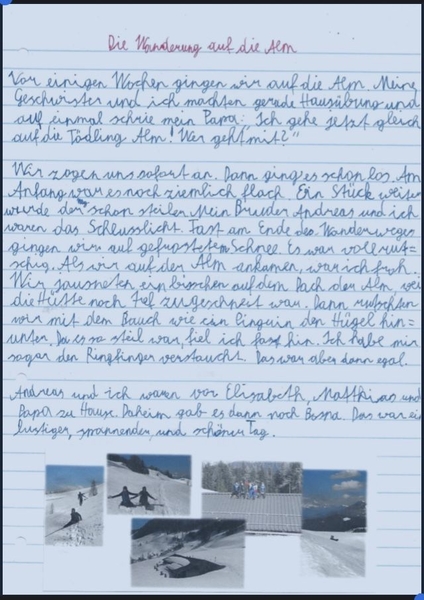 Die Wanderung auf die Alm
Vor einigen Wochen gingen wir auf die Alm. Meine
Geschwister und ich machten gerade Hausübung und
auf einmal schrie mein Papa: „Ich gehe jetzt gleich
auf die Tödling Alm! Wer geht mit?"
Wir zogen uns sofort an. Dann ging es schon los. Am
Anfang war es noch ziemlich flach. Ein Stück weiter
wurde der schon steiler. Mein Bruder Andreas und ich
waren das Schlusslicht. Fast am Ende des Wanderweges
gingen wir auf gefrostetem Schnee. Es war voll rut=
schig. Als wir auf der Alm ankamen, war ich froh.
Wir sausneten ein bisschen auf dem Dach der Alm, wei
die Hütte noch tief zugeschneit war. Dann rutschten
wir mit dem Bauch wie ein Pinguin den Hügel hin=
unter. Da es so steil war, fiel ich fast hin. Ich habe mir
sogar den Ringfinger verstaucht. Das war aber dann egal.
Andreas und ich waren vor Elisabeth, Matthias und
Papa zu Hause. Daheim gab es dann noch Bosna. Das war ein
lustiger, spannender und schöner Tag.